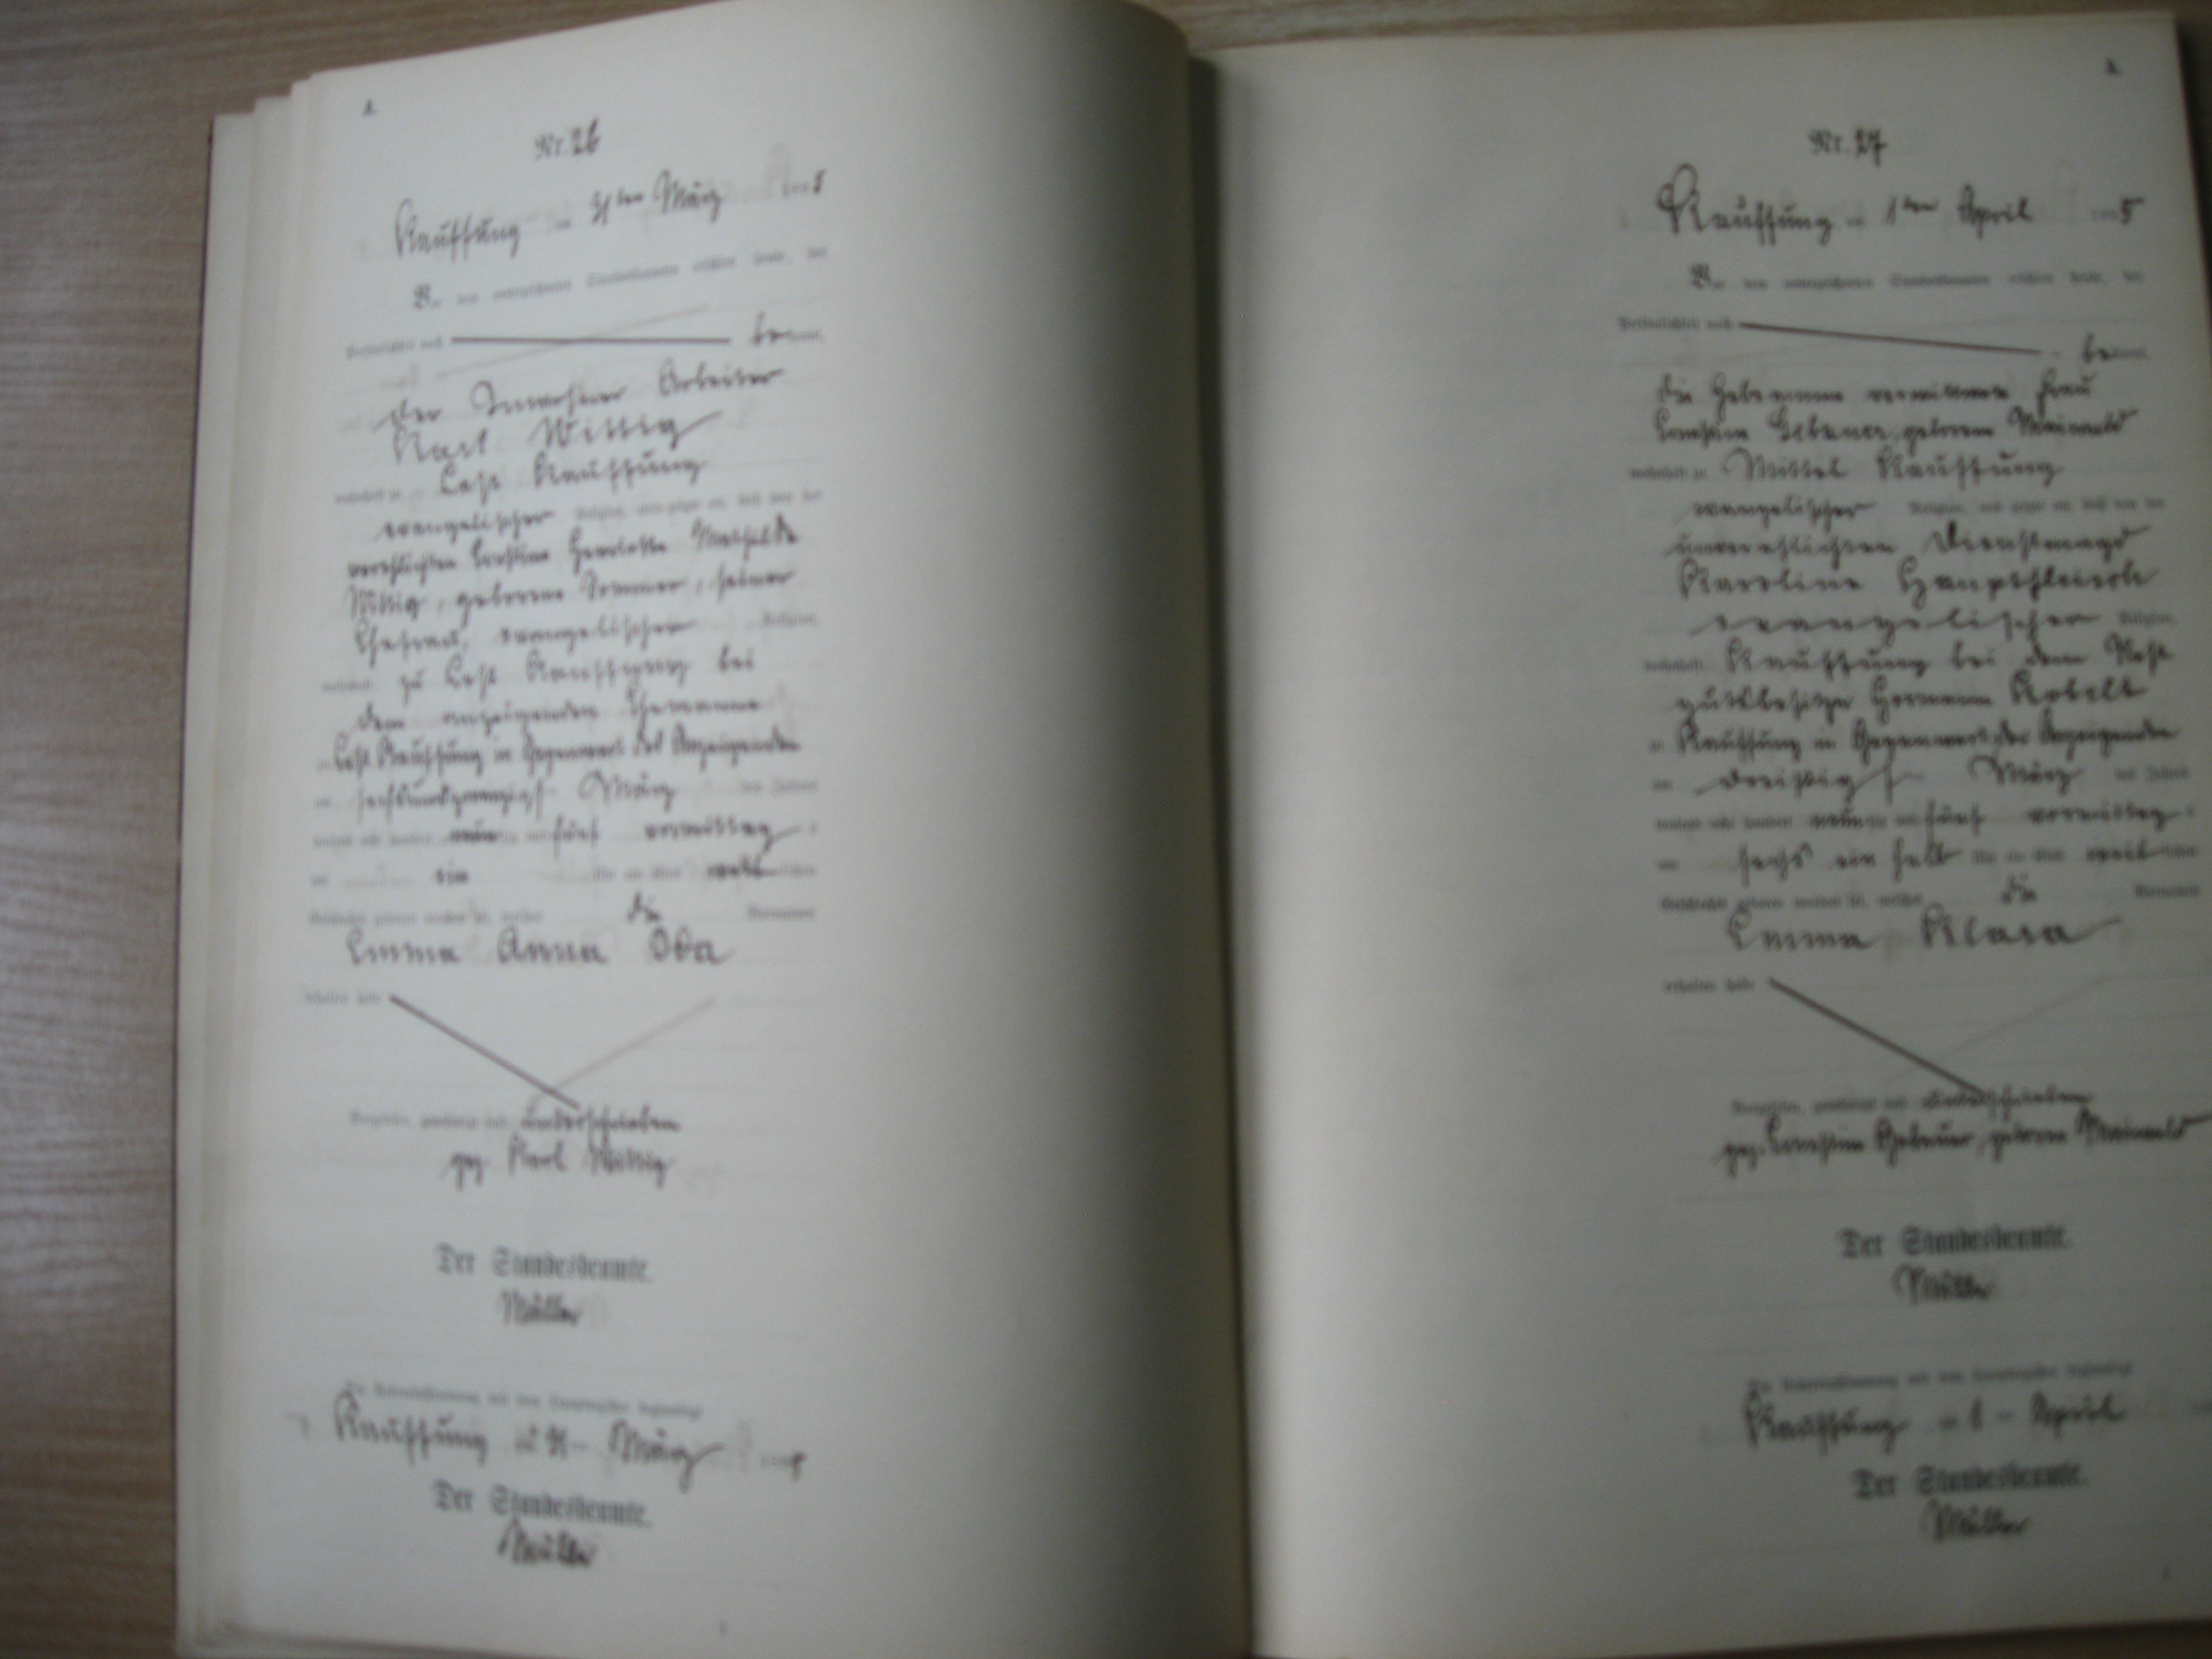 A.
Nr. 26
Kauffung am 31ten März 5
Vor dem unterzeichneten Standesbeamten erschien heute, der
Persönlichkeit nach bekannt,
der Arbeiter
Karl Wittig
wohnhaft zu Kauffung
evangelischer Religion, und zeigte an, daß von der
verehelichten Mathilde
Wittig, geborene Sommer, seiner
Ehefrau, evangelischer Religion,
wohnhaft zu Kauffung bei
dem anzeigenden Ehemanne
zu Kauffung in Gegenwart des Anzeigenden
am sechsundzwanzigst März des Jahres
tausend acht hundert neun zig und fünf vormittag s
um ein Uhr ein Kind weiblichen
Geschlechts geboren worden ist, welches die Vornamen
Emma Anna Ida
erhalten habe
Vorgelesen, genehmigt und unterschrieben
gez. Karl Wittig
Der Standesbeamte.
Müller
Die Uebereinstimmung mit dem Hauptregister beglaubigt
Kauffung am 31 März 5
Der Standesbeamte.
Müller
A.
Nr. 27
Kauffung am 1ten April 5
Vor dem unterzeichneten Standesbeamten erschien heute, der
Persönlichkeit nach bekannt,
die Hebamme verwittwete Frau
geborene Meinwald
wohnhaft zu Mittel Kauffung
evangelischer Religion, und zeigte an, daß von der
unverehelichten Dienstmagd
Karoline Hauptfleisch
evangelischer Religion,
wohnhaft Kauffung bei dem
gutsbesitzer Hermann Kobelt
zu Kauffung in Gegenwart der Anzeigenden
am dreißigst März des Jahres
tausend acht hundert neun zig und fünf vormittag s
um sechs ein halb Uhr ein Kind weiblichen
Geschlechts geboren worden ist, welches die Vornamen
Emma Klara
erhalten habe
Vorgelesen, genehmigt und unterschrieben
gez. Gebauer, geborene Meinwald
Der Standesbeamte.
Müller
Die Uebereinstimmung mit dem Hauptregister beglaubigt
Kauffung am 1 April
Der Standesbeamte.
Müller